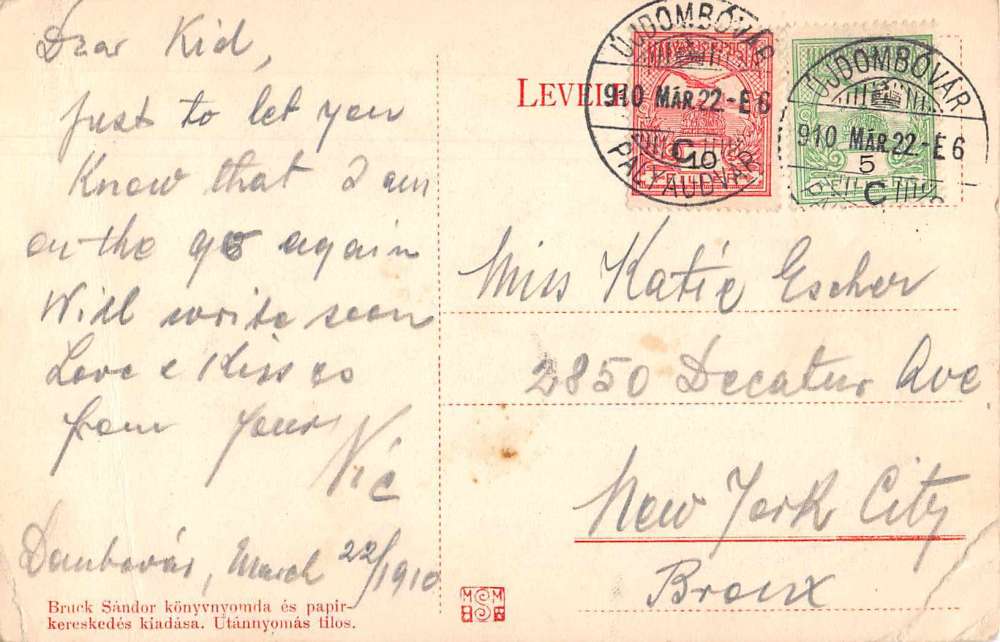 Dear Kid,
just to let you
Know that I am
on the go again
Will write soon
Love & Kisses
from your
Vic
Dombovár, March 22/1910
Bruck Sándor könyvnyomda és papir-
kereskedés kiadása. Utánnyomás tilos.
LEVELE
ÚJDOMBÓVÁR
910 MÁR.22-É6
C
PÁLYAUDVAR
10
ÚJDOMBÓVÁR
910 MÁR.22-É6
5
C
Miss Katie Escher
2850 Decatur Ave
New York City
Bronx
MSM